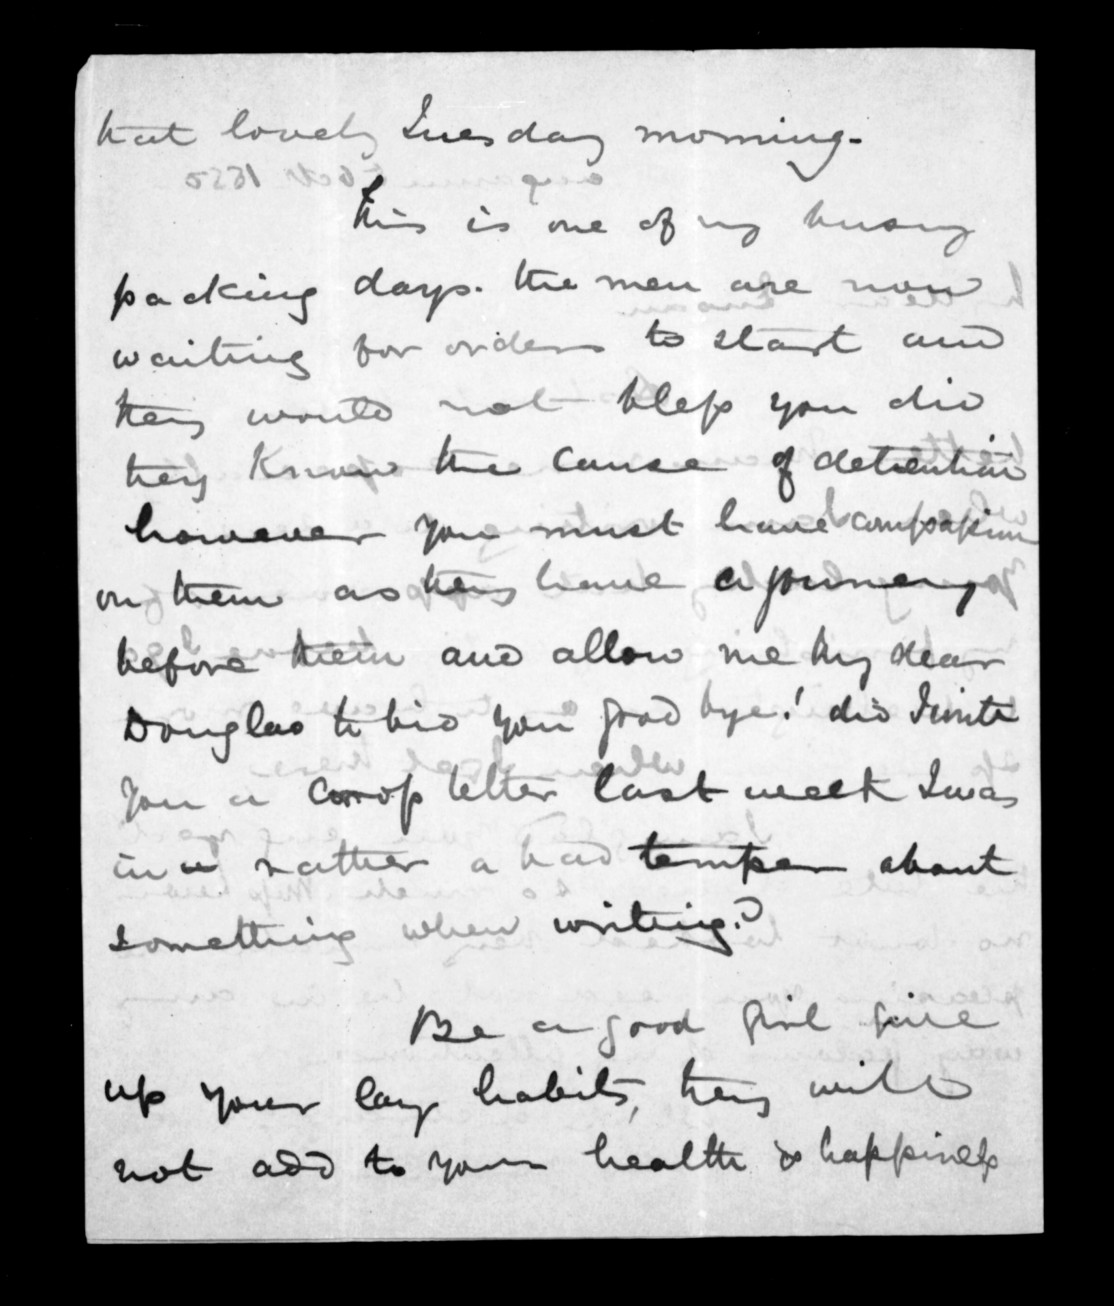 that lovely Tuesday morning.
This is one of my busy
packing days. the men are now
waiting for orders to start and
they would not bless you did
they know the cause of detention
however you must have compassion
on them as they have a journey
before them and allow me my dear
Douglas to bid you good bye! did I write
you a cross letter last week I was
in rather a bad temper about
something when writing?
Be a good girl give
up your lazy habits, they will
not add to your health & happiness